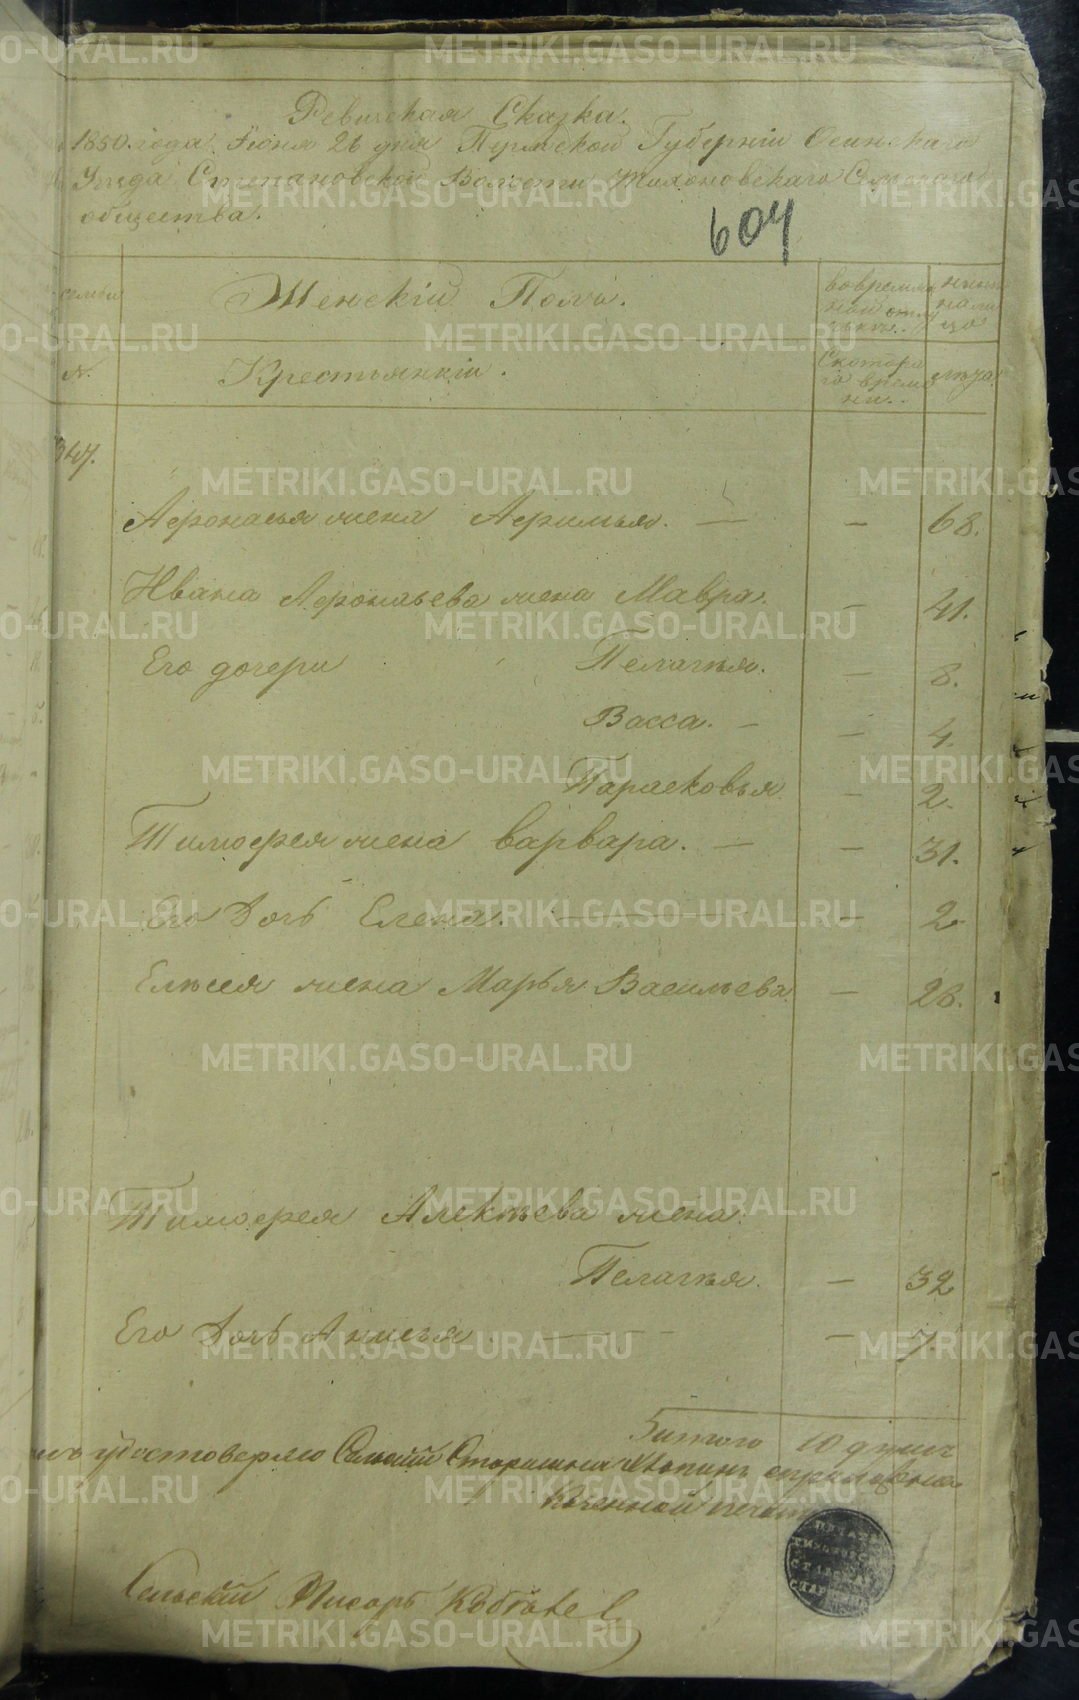 Ревизская Сказка.
1850. года. Июня 26 дня Пермской Губерніи Осинскаго
Уезда Степановской Волости Тихоновскаго Сельскаго
общества.
604
семьи
Женскій Полъ.
вовременной отлучкѣ..
ныне на лицо
№.
Крестьянкіи.
Скотораго времени..
лѣта.
347.
Афонасья жена Афимья. — — 68.
Ивана Афонасьева жена Мавра. — 41.
Его дочери Пелагѣя. — 8.
Васса. — — 4.
Парасковья — 2.
Тимофея жена варвара. — — 31.
Его дочь Елена. — — 2
Елѣсея жена Марья Васильева — 26.
Тимофея Алексѣева жена
Пелагѣя. — 32
Его дочь Анисья — — 7.
итого 10 душъ
удостоверяю Сельскій Старшина сприложениемъ
Казенной печати
Сельскій Писарь
METRIKI.GASO-URAL.RU